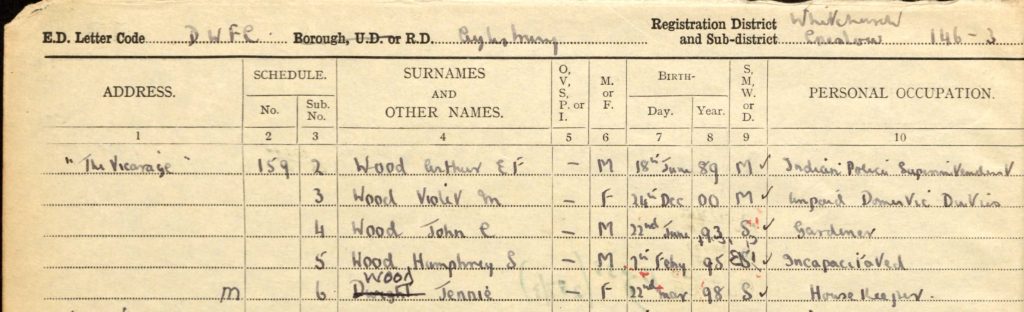 E.D. Letter Code D W F L Borough, U.D. or R.D. Aylesbury Registration District and Sub-district Whitchurch 146-3
ADDRESS. SCHEDULE. No. Sub. No. SURNAMES AND OTHER NAMES. O, V, S, P. or I. M. or F. BIRTH- Day. Year. S, M, W. or D. PERSONAL OCCUPATION.
1 2 3 4 5 6 7 8 9 10
"The Vicarage" 159 2 Wood Arthur E F – M 18th June 89 M ✓ Indian Police Superintendent
3 Wood Violet M – F 24th Dec 00 M ✓ Unpaid Domestic Duties
4 Wood John C – M 22nd June 93 S ✓ Gardener
5 Wood Humphrey S – M 7th Feby 95 S ✓ Incapacitated
Wood
m 6 Dwight Jennie – F 22nd Mar 98 S ✓ House Keeper.